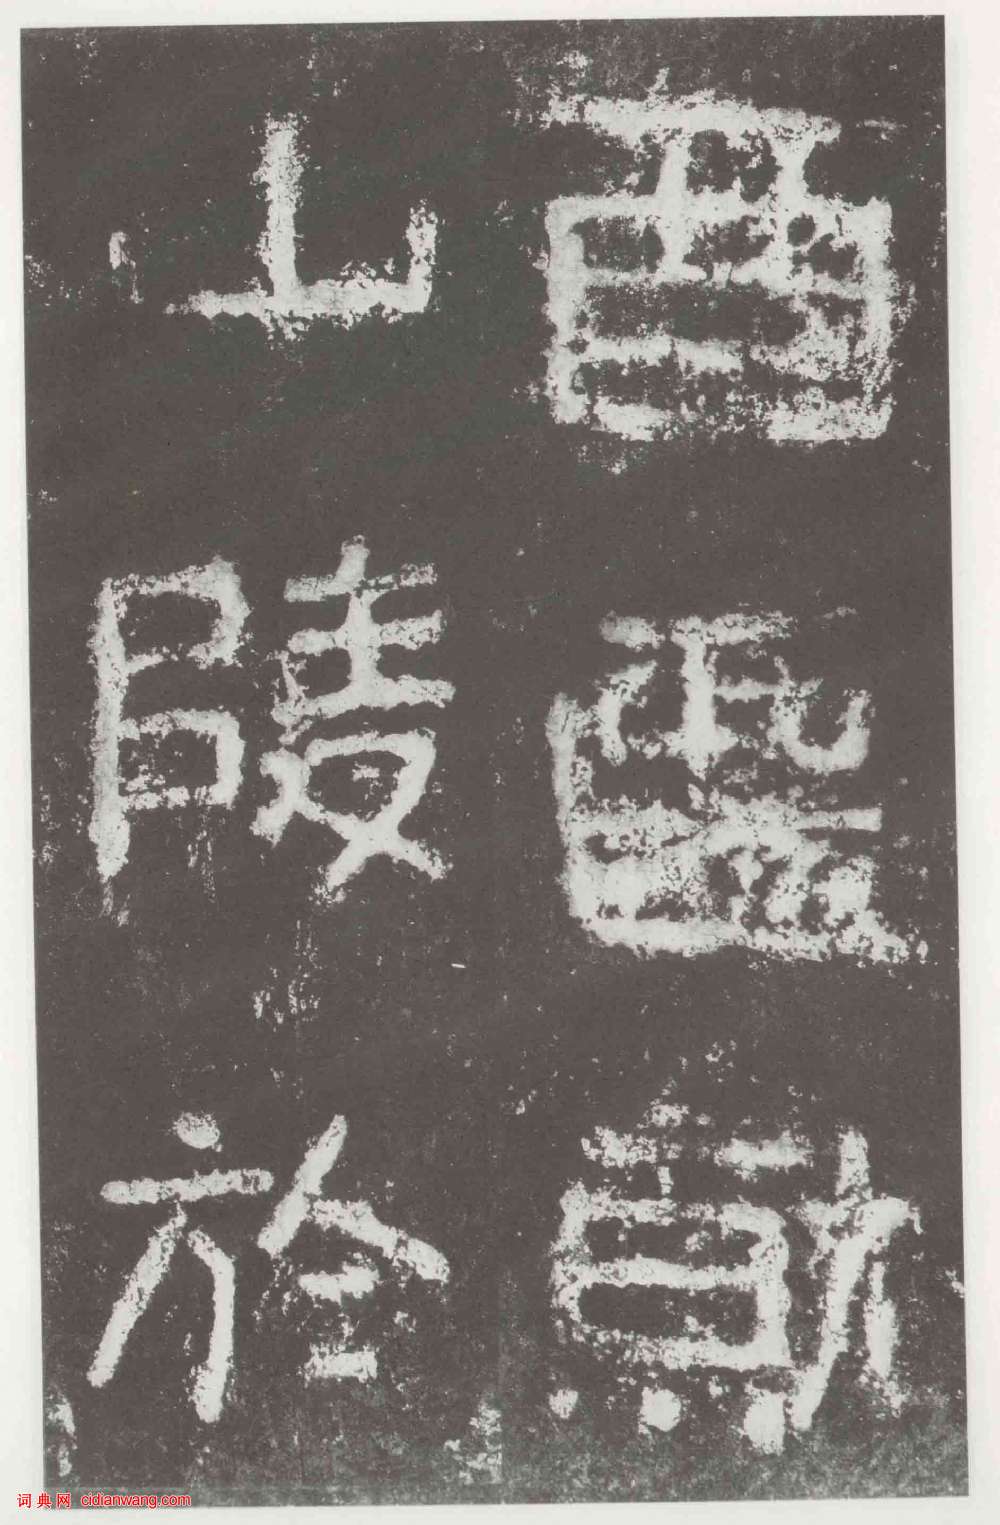 酉遷就
山陵於
词典网 cidianwang.com